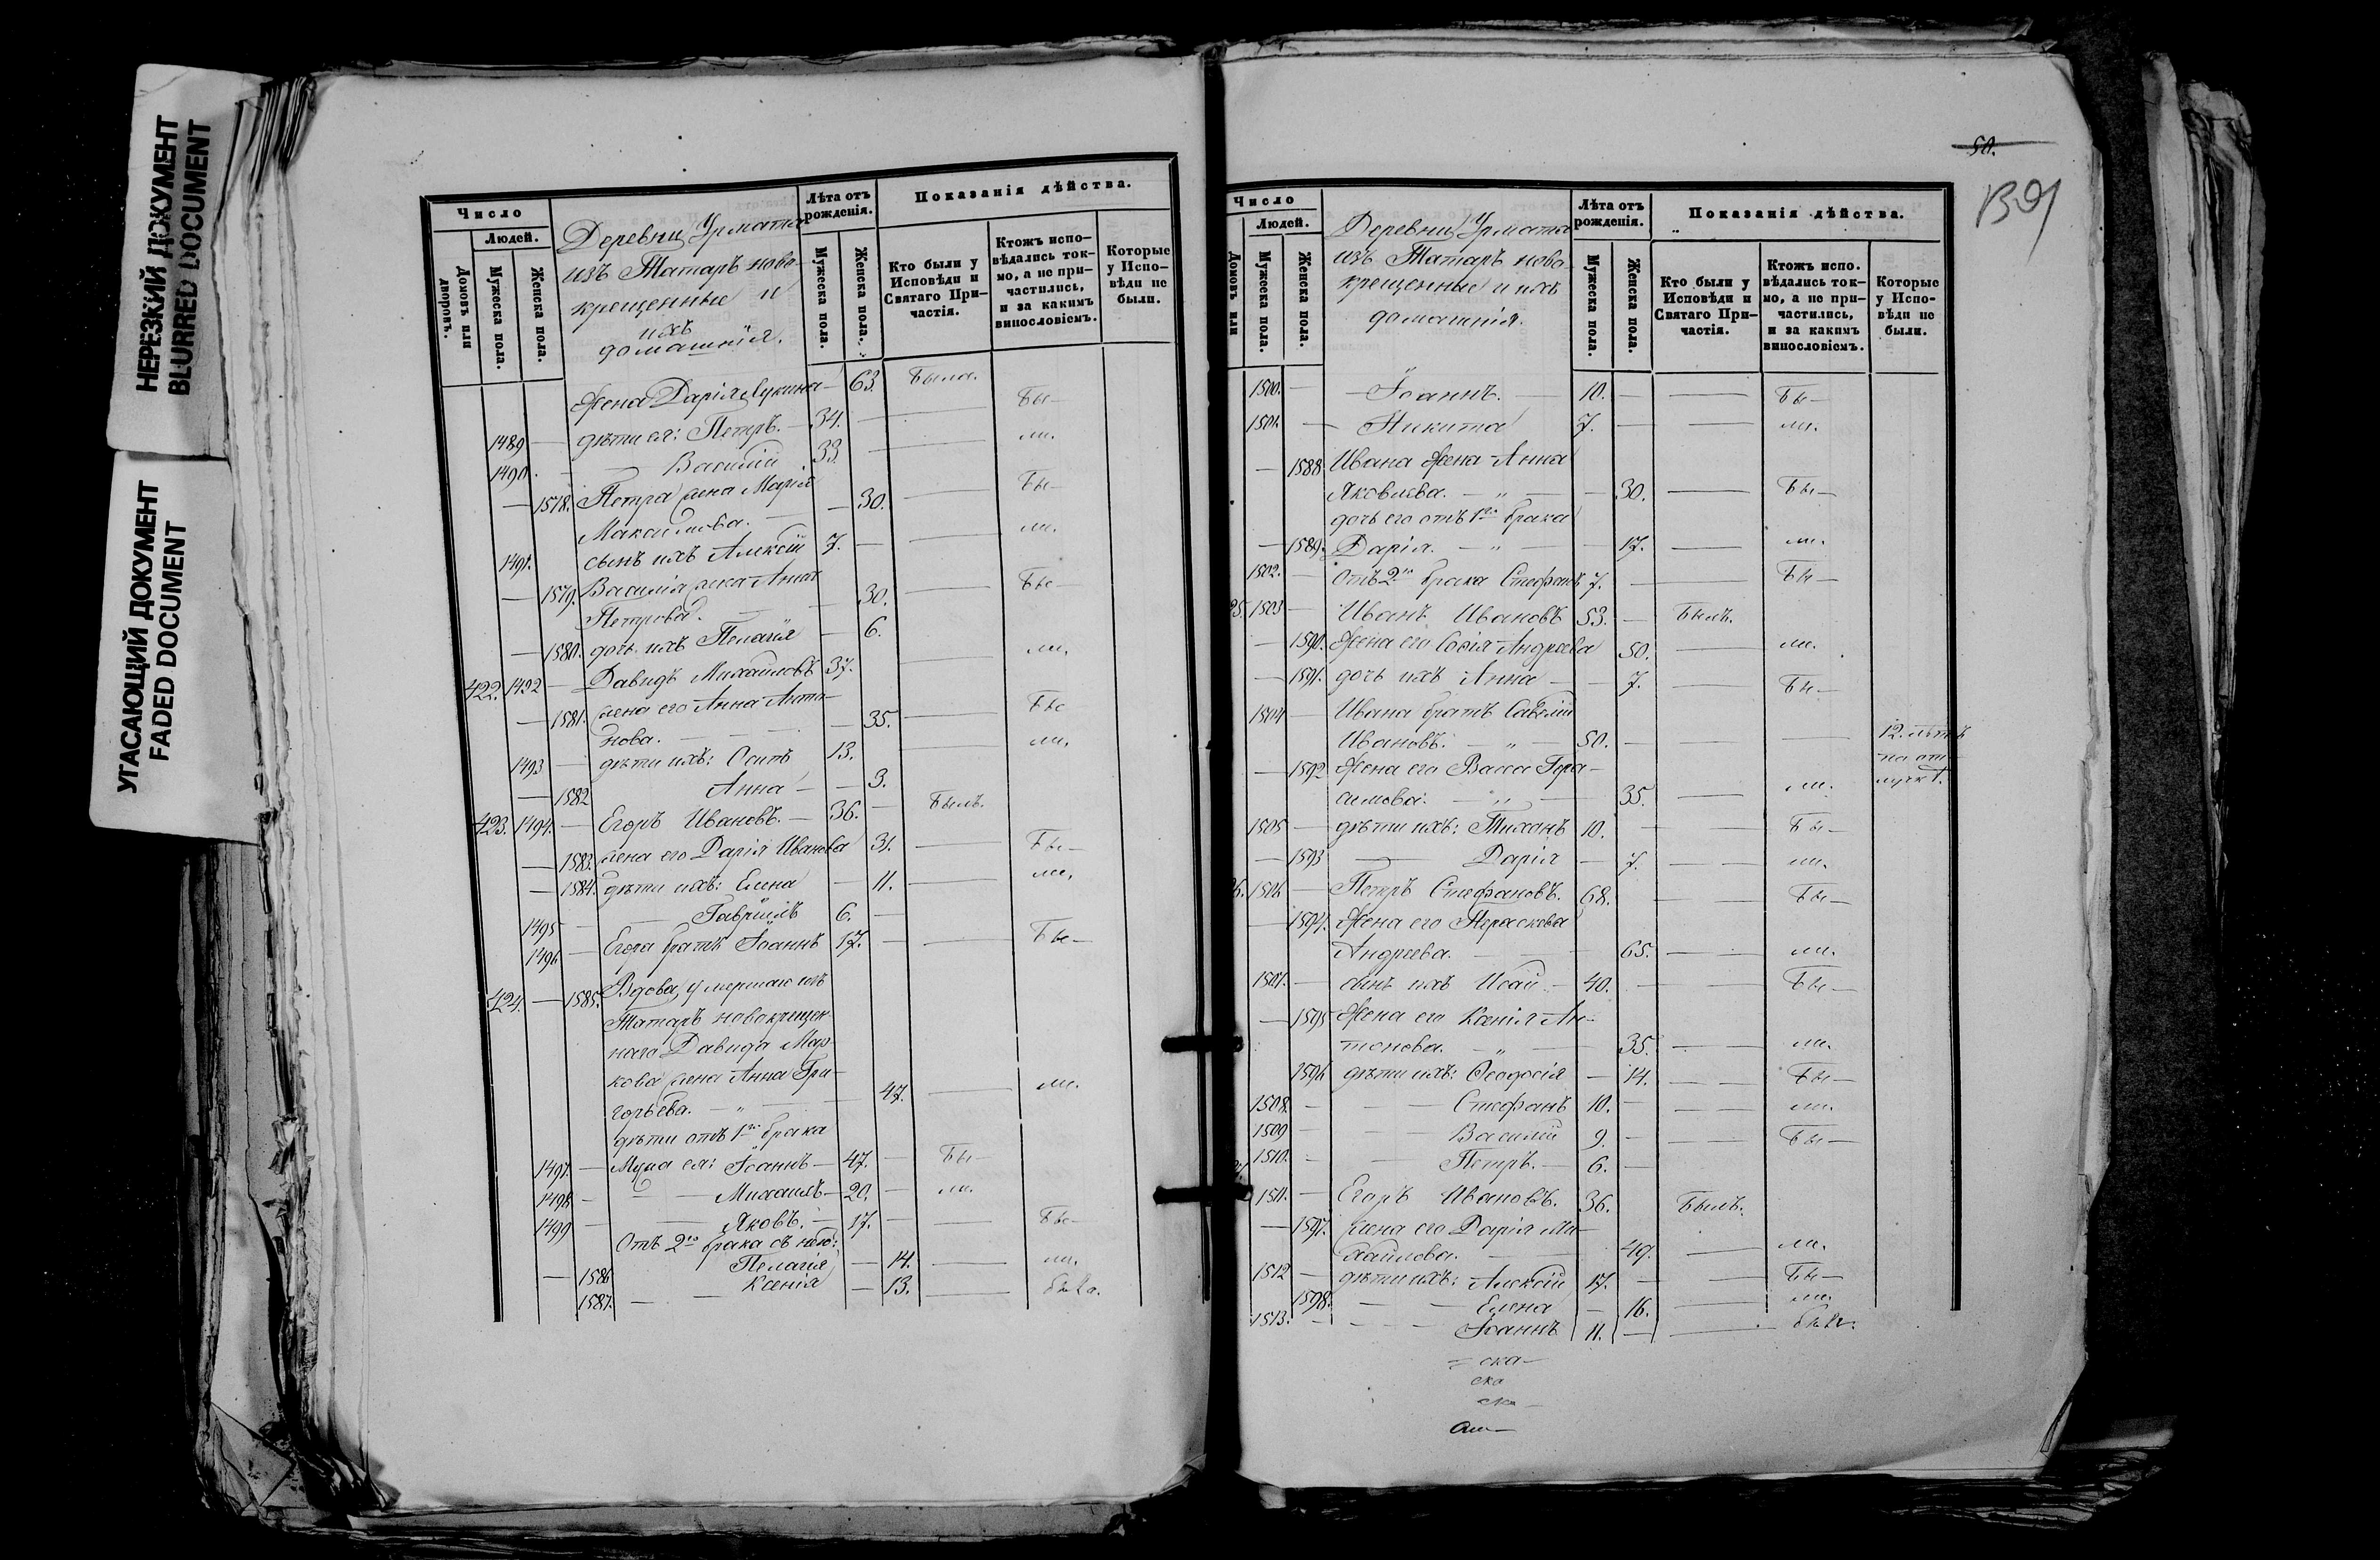 НЕРЕЗКИЙ ДОКУМЕНТ
BLURRED DOCUMENT
УГАСАЮЩИЙ ДОКУМЕНТ
FADED DOCUMENT
Число
Людей.
Домовъ или дворовъ.
Мужеска пола.
Женска пола.
Деревни Урмата
изъ Татаръ ново-
крещенные и
ихъ
домашнія.
Лѣта отъ рожденія.
Мужеска пола.
Женска пола.
Показанія дѣйства.
Кто были у Исповѣди и Святаго При-частія.
Ктожъ испо-вѣдались ток-мо, а не при-частились, и за какимъ винословіемъ.
Которые у Испо-вѣди не были.
Жена Дарія Лукина — 63. Была.
1489 — дѣти ея: Петръ. — 34. — Бы-
1490. — Василій 33. — ли.
— 1578. Петра жена Марія
Максимова. — 30. — Бы-
1491. сынъ ихъ Алексій 7. — ли.
— 1579. Василія жена Анна
Петрова. — 30. — Бы-
— 1580. дочь ихъ Пелагія — 6.
422. 1492 — Давидъ Михайловъ 37. — ли.
— 1581. жена его Анна Анто-
нова. — 35. — Бы
1493 — дѣти ихъ: Осипъ 13. — ли.
— 1582 Анна — 3.
423. 1494. — Егоръ Ивановъ. — 36. — Былъ.
— 1583. жена его Дарія Иванова 31. — Бы-
— 1584. дѣти ихъ: Елена — 11. — ли.
1495 — Гавріилъ 6. —
1496 — Егора братъ Іоаннъ 17. — Бы-
424. — 1585. Вдова, умершаго изъ
Татаръ новокрещен-
наго Давида Мар-
кова жена Анна Гри-
горьева. — „ — 47. — ли.
дѣти отъ 1го брака
1497. — Мужа ея: Іоаннъ — 47. — Бы-
1498 — Михаилъ — 20. — ли.
1499 — Яковъ. — 17. — Бы-
Отъ 2го брака съ нею:
— 1586 Пелагія — 14. — ли.
1587. — Ксенія — 13. — была.
50.
139
Число
Людей.
Домовъ или
Мужеска пола.
Женска пола.
Деревни Урмата
изъ Татаръ ново-
крещенные и ихъ
домашнія.
Лѣта отъ рожденія.
Мужеска пола.
Женска пола.
Показанія дѣйства.
Кто были у Исповѣди и Святаго При-частія.
Ктожъ испо.вѣдались ток-мо, а не при-частились, и за какимъ винословіемъ.
Которые у Испо-вѣди не были.
1500. — Іоаннъ. — 10. — Бы-
1501. — Никита 7. — ли.
— 1588. Ивана жена Анна
Яковлева. — „ — 30. — Бы-
дочь его отъ 1го брака
— 1589. Дарія. — „ — 17. — ли.
1502. — Отъ 2го брака Стефанъ 7. — Бы-
25. 1503 — Иванъ Ивановъ 53. — Былъ.
— 1590. Жена его Софія Андреева 50. — ли.
— 1591. дочь ихъ Анна — 7. — Бы-
1504 — Ивана братъ Савелій
Ивановъ. — „ — 50. — 12. лѣтъ
на от-
лучкѣ.
— 1592 Жена его Васса Гера-
симова. — „ — 35. — ли.
1505 — дѣти ихъ: Тихонъ 10. — Бы-
— 1593 — Дарія — 7. — ли.
26. 1506 — Петръ Стефановъ. 68. — Бы-
— 1594. Жена его Параскева
Андреева. — 65. — ли.
1507. — сынъ ихъ Исай — 40. — Бы-
— 1595 Жена его Ксенія Ан-
тонова. — „ — 35. — ли.
1596 дѣти ихъ: Ѳеодосія — 14. — Бы-
1508. — Стефанъ 10. — ли.
1509 — Василій 9. — Бы-
1510. — Петръ. — 6. —
1511. — Егоръ Ивановъ. 36. Былъ.
— 1597. жена его Дарія Ми-
хайлова. — 49. — ли.
1512 — дѣти ихъ: Алексій 17. — Бы-
1598. — Елена — 16. — ли.
1513. — Іоаннъ 11. — были.
ска-
ска